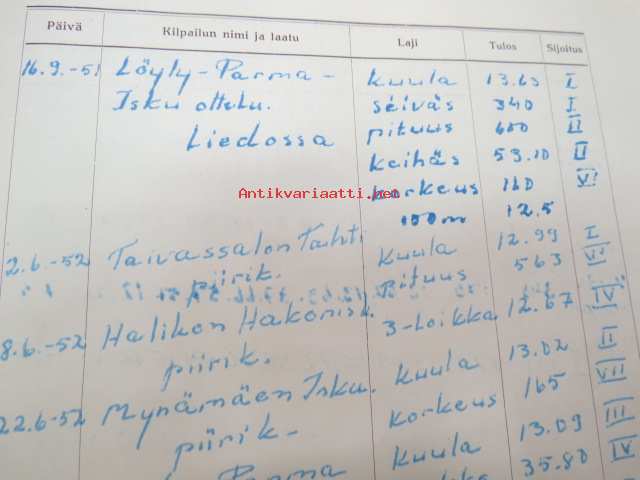 Päivä Kilpailun nimi ja laatu Laji Tulos Sijoitus
16.9.-51 Löyly-Parma- kuula 13.63 I
Isku ottelu. seiväs 340 I
Liedossa pituus 600 II
keihäs 53.10 II
korkeus 160 VI
Antikvariaatti.net
100m 12.5
2.6.-52 Taivassalon Tahti kuula 12.99 I
piirik. pituus 563 VI
8.6.-52 Halikon Hakonisk. 3-loikka 12.67 IV
piirik. kuula 13.02 II
22.6-52 Mynämäen Isku. korkeus 165 VII
piirik- kuula 13.09 III
Parma 35.80 IV